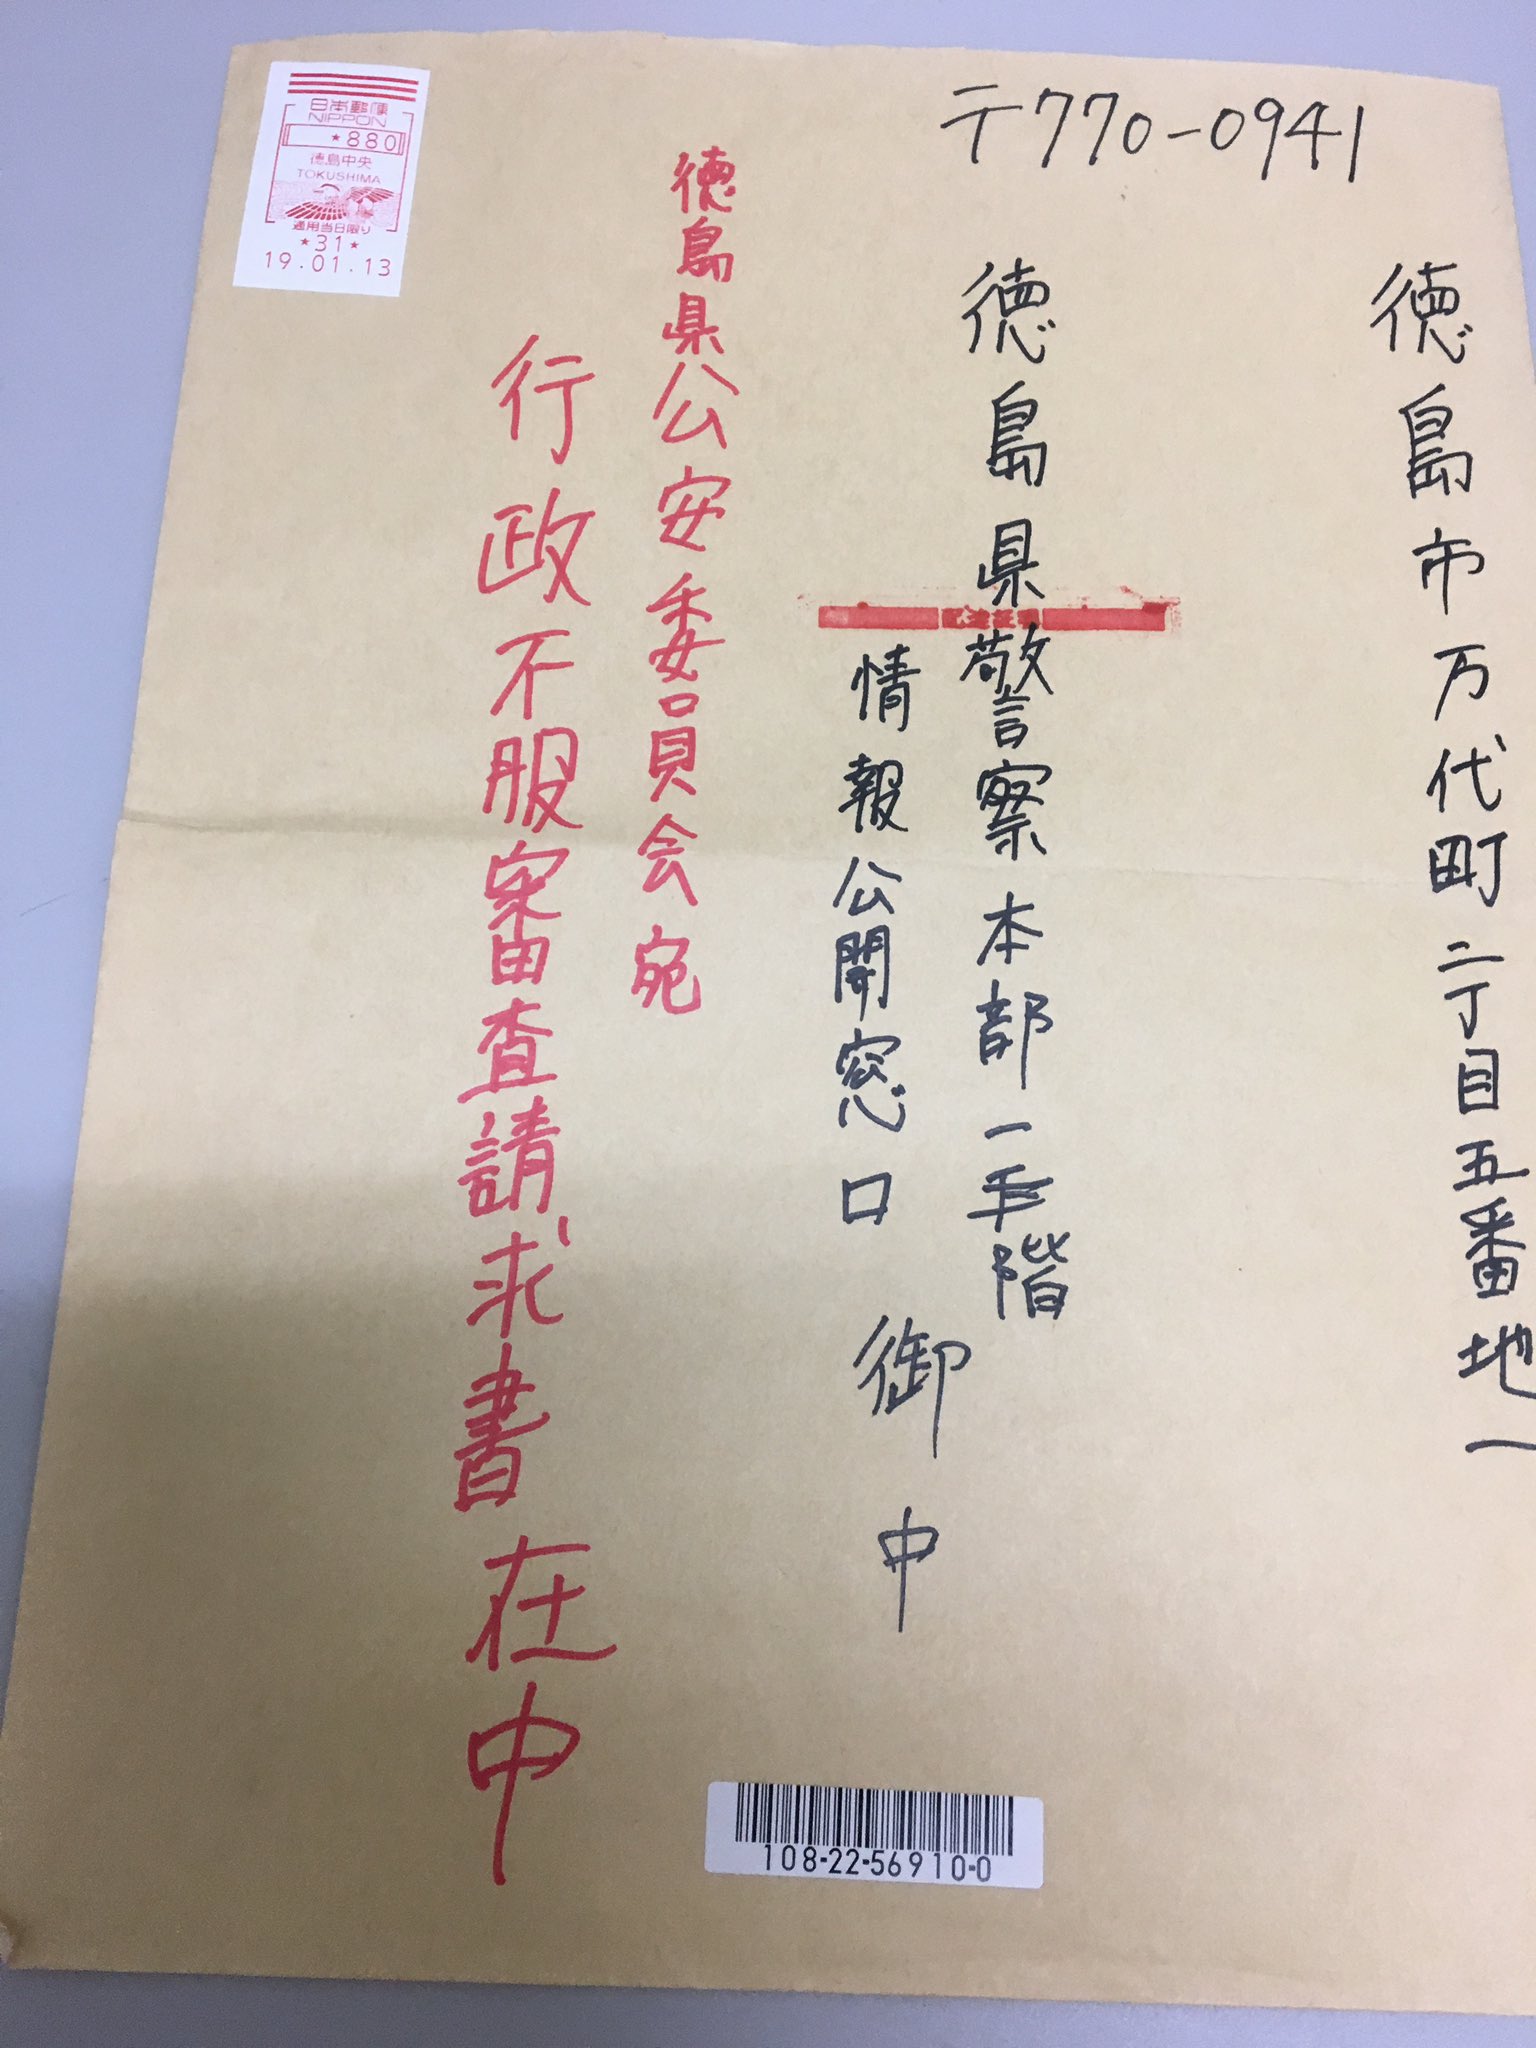 日本郵便
NIPPON
*880
徳島中央
TOKUSHIMA
通用当日限り
*31*
19.01.13
〒770-0941
徳島市万代町二丁目五番地一
徳島県警察本部一階
情報公開窓口 御中
徳島県公安委員会宛
行政不服審査請求書在中
108-22-56910-0